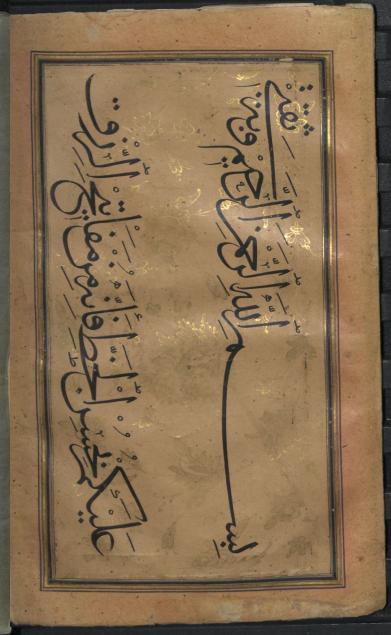 بسم الله الرحمن الرحيم وبه ثقتي
عليكم بحسن الخط فانه من مفاتيح الرزق